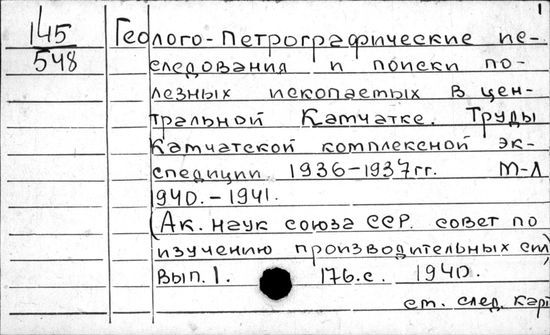 1
145
548
Геолого-Петрографические ис-
следования и поиски по-
лезных ископаемых в цен-
тральной Камчатке. Труды
Камчатской комплексной эк-
спедиции 1936-1937гг. М-Л
1940.-1941.
(Ак. наук союза ССР. совет по
изучению производительных сил)
Вып. 1. 176.с. 1940.
см. след. карт